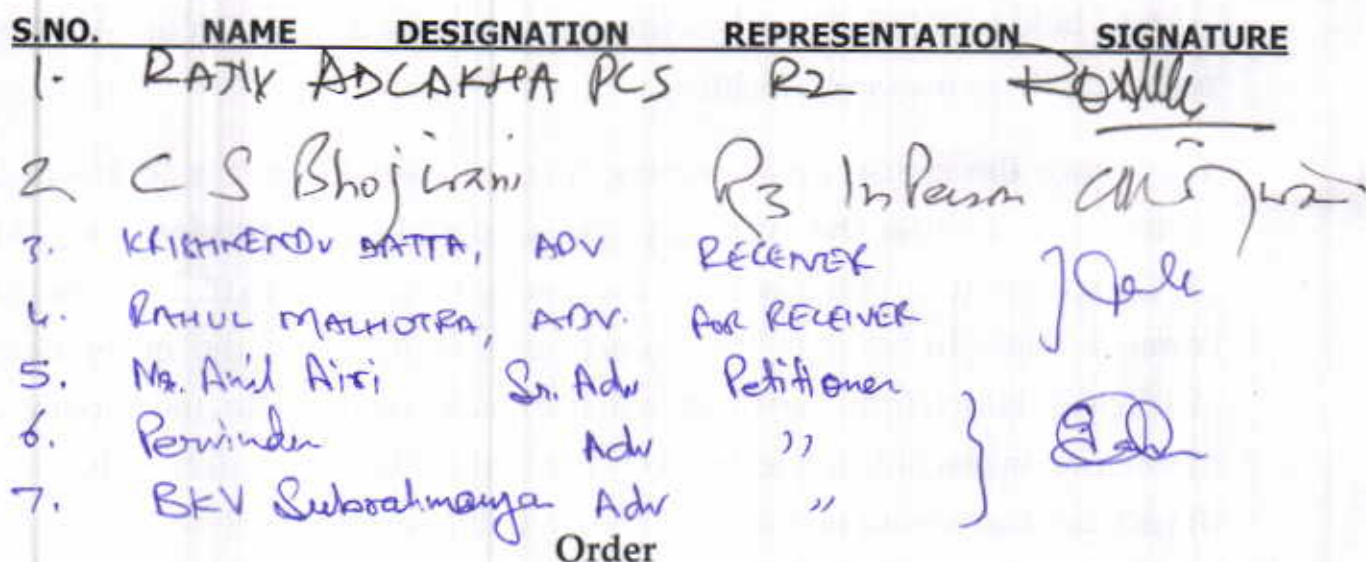 S.NO. NAME DESIGNATION REPRESENTATION SIGNATURE
1. RAJIV ADLAKHA PCS R2
2 C S Bhojwani R3 In Person
3. KRISHNENDU DATTA, ADV RECEIVER
4. RAHUL MALHOTRA, ADV. FOR RECEIVER
5. Mr. Anil Airi Sr. Adv Petitioner
6. Perwinder Adv "
7. BKV Subrahmanya Adv "
Order